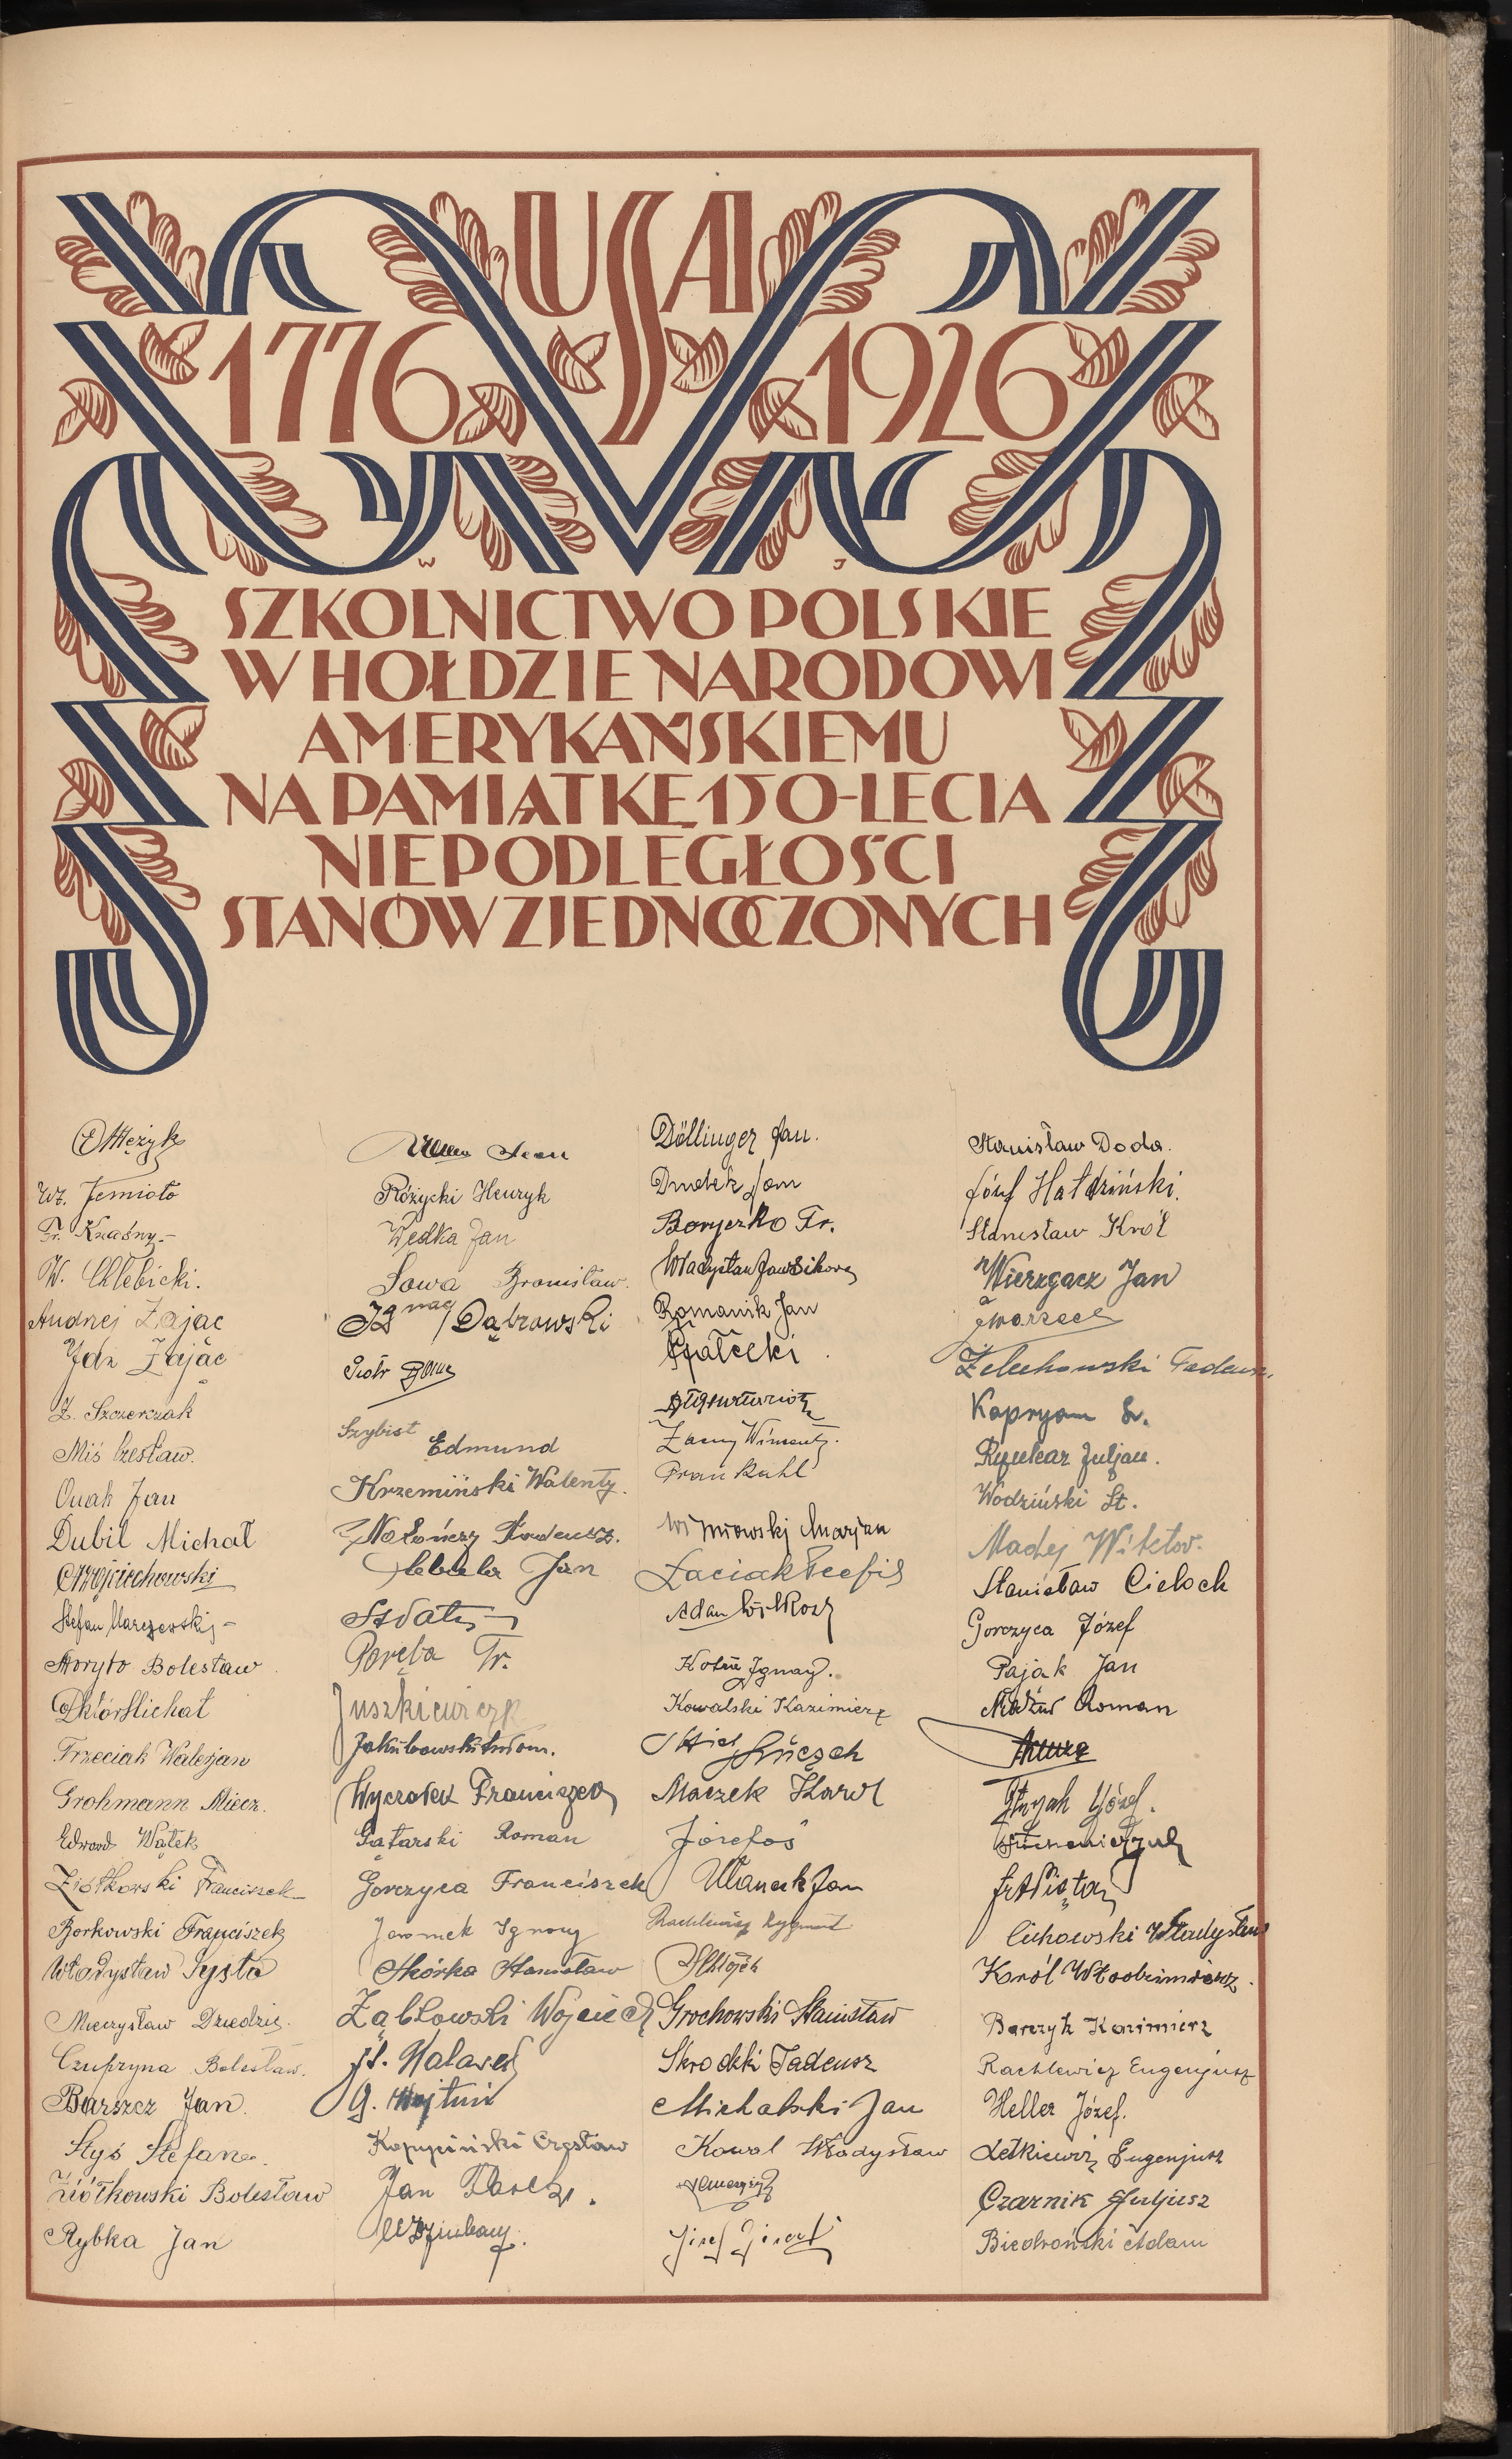 USA
1776 1926
W J
SZKOLNICTWO POLSKIE
W HOŁDZIE NARODOWI
AMERYKAŃSKIEMU
NA PAMIĄTKĘ 150-LECIA
NIEPODLEGŁOŚCI
STANÓW ZJEDNOCZONYCH
Wł. Jemioło
Fr. Kraśny.-
W. Chlebicki.
Andrzej Zając
Idzi Zając
Z. Szczerczak
Miś Czesław.
Onak Jan
Dubil Michał
Cz Wojciechowski
Stefan Marszewski -
Storyło Bolesław
Dktór Michał
Trzeciak Walerjan
Grohmann Miecz.
Edward Wątek
Ziółkowski Franciszek
Borkowski Franciszek
Władysław Sysło
Mieczysław Dziedzic.
Czupryna Bolesław.
Barszcz Jan.
Styś Stefan
Ziółkowski Bolesław
Rybka Jan
Różycki Henryk
Wędka Jan
Sowa Bronisław.
Ignacy Dąbrowski
Piotr
Szybist Edmund
Krzemiński Walenty.
Jan
Poręba Fr.
Juszkiewicz
Jakubowski
Wyczałek Franciszek
Gątarski Roman
Gorczyca Franciszek
Jaromek Ignacy
Skórka Stanisław
Ząbkowski Wojciech
G. Wojtuń
Kopypiński Czesław
Jan
Döllinger Jan.
Dudek Jan
Boryczko Fr.
Władysław Jan Sikora
Romanik Jan
Pałecki
Zacny Wincenty.
Fran Kuhl
Marjan
Łaciak Teofil
Adam Wilkosz
Ignacy.
Kowalski Kazimierz
Maczek Karol
Józefoś
Ulanek Jan
Rachlewicz Zygmunt
Grochowski Stanisław
Skrodzki Tadeusz
Michalski Jan
Kowal Władysław
Józef
Stanisław Doda.
Józef Hałdziński.
Stanisław Król
Wierzgacz Jan
Gwarzeck
Żelechowski Tadeusz.
Kapryan St.
Rynkar Juljan.
Wodziński St.
Madej Wiktor.
Stanisław Cieloch
Gorczyca Józef
Pająk Jan
Roman
Józef.
Fr. Piąta
Cichowski Władysław
Król Włodzimierz.
Barczyk Kazimierz
Rachlewicz Eugenjusz
Heller Józef.
Letkiewicz Eugenjusz
Czarnik Juljusz
Biedroński Adam